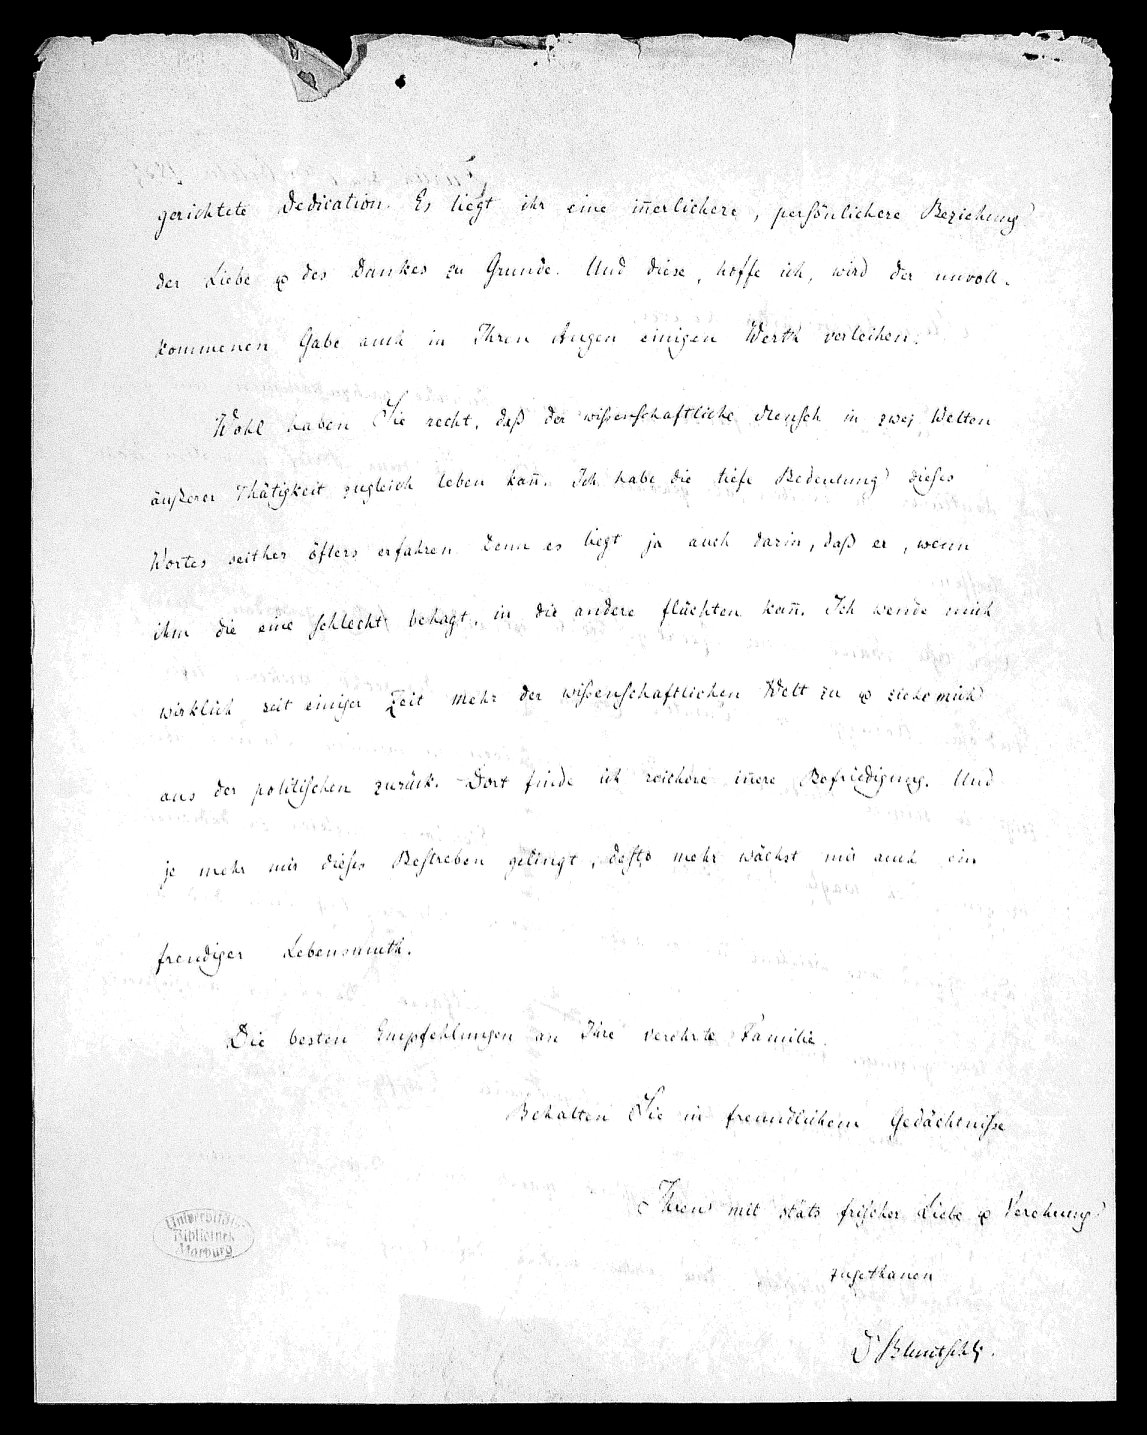 gerichtete Dedication. Es liegt ihr eine iñerlichere, persönlichere Beziehung
der Liebe & des Dankes zu Grunde. Und diese, hoffe ich, wird der unvoll-
kommenen Gabe auch in Ihren Augen einigen Werth verleihen.
Wohl haben Sie recht, daß der wißenschaftliche Mensch in zwei Welten
äußerer Thätigkeit zugleich leben kañ. Ich habe die tiefe Bedeutung dieses
Wortes seither öfters erfahren. Denn es liegt ja auch darin, daß er, wenn
ihm die eine schlecht behagt, in die andere flüchten kañ. Ich wende mich
wirklich seit einiger Zeit mehr der wißenschaftlichen Welt zu & ziehe mich
aus der politischen zurück. Dort finde ich reichere iñere Befriedigung. Und
je mehr mir dieses Bestreben gelingt, desto mehr wächst mir auch ein
freudiger Lebensmuth.
Die besten Empfehlungen an Ihre verehrte Familie.
Behalten Sie in freundlichem Gedächtniße
Ihren mit stäts frischer Liebe & Verehrung
zugethanen
Dr Bluntschli.
Universitäts-
Bibliothek
Marburg